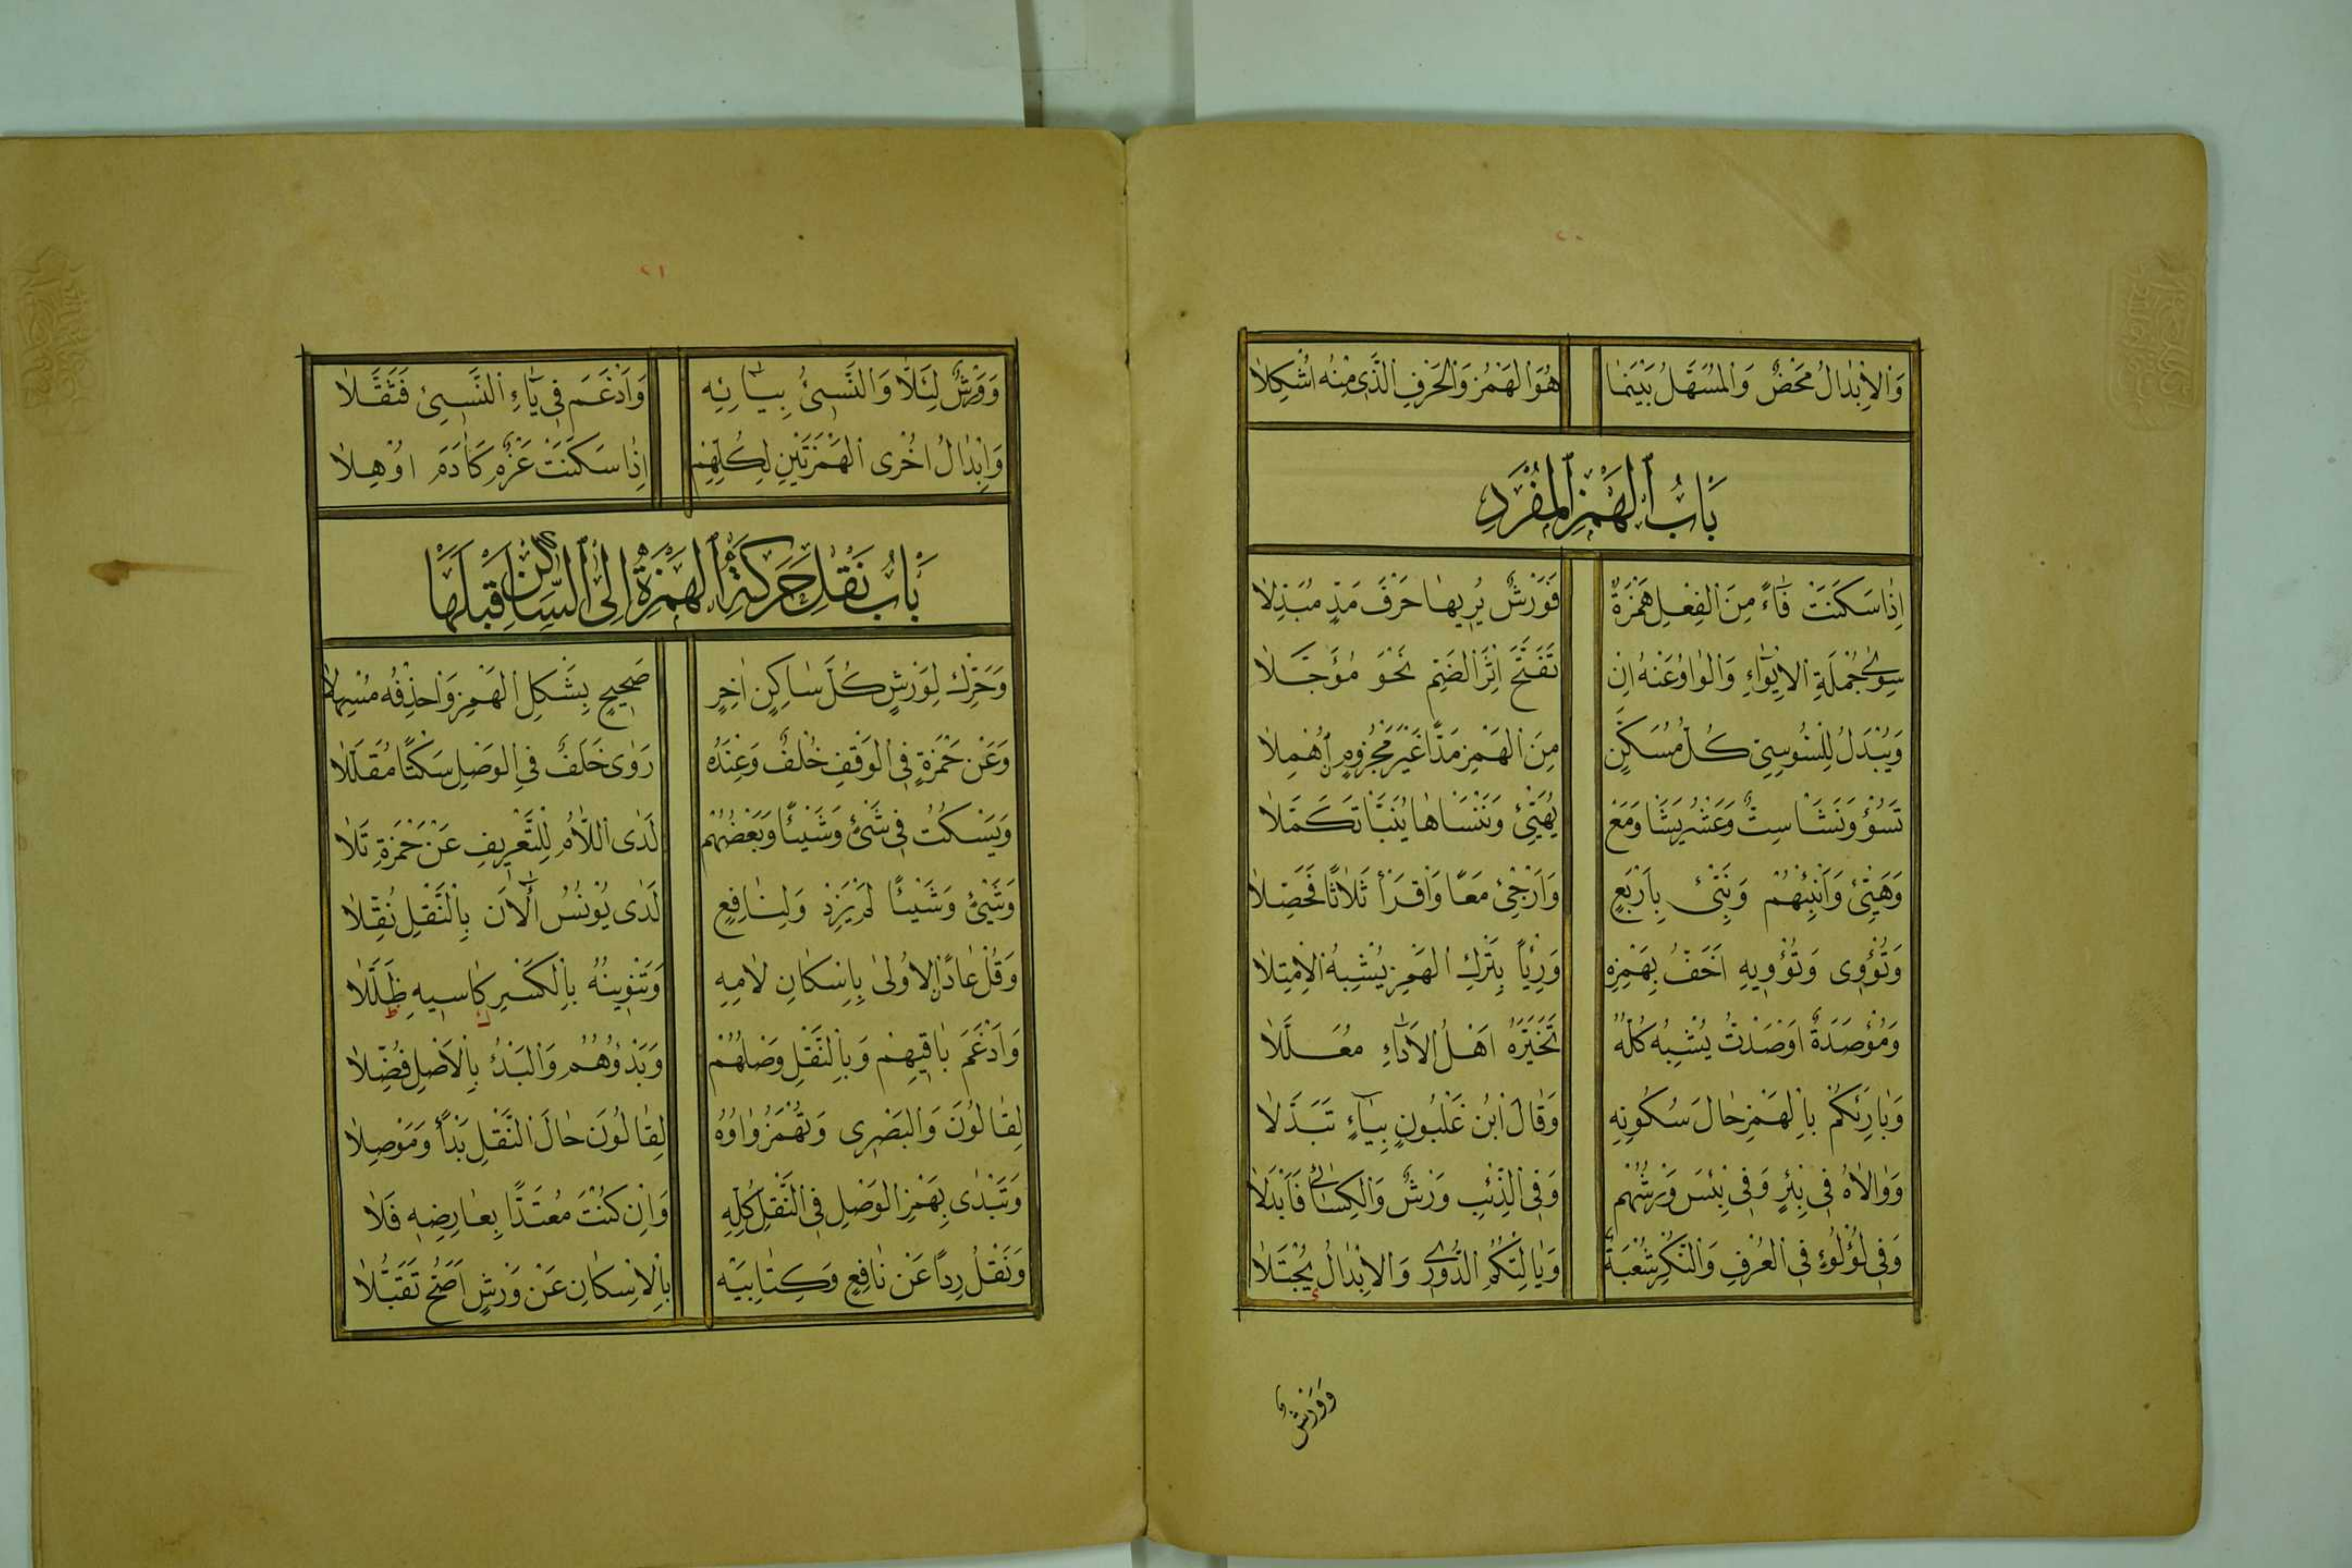 ٢٠
وَالْاِبْدَالُ مَحْضٌ وَالْمُسَهَّلُ بَيْنَمَا هُوَ الْهَمْزُ وَالْحَرْفِ الَّذِى مِنْهُ اُشْكِلَا
بَابُ الْهَمْزِ الْمُفْرَدِ
اِذَا سَكَنَتْ فَاءً مِنَ الْفِعْلِ هَمْزَةٌ فَوَرْشٌ يُرِيهَا حَرْفَ مَدٍّ مُبَدِّلَا
سِوٰى جُمْلَةِ الْاِيْوَاءِ وَالْوَاوُ عَنْهُ اِنْ تَفَتَّحَ اِثْرَ الضَّمِّ نَحْوَ مُؤَجَّلَا
وَيُبْدَلُ لِلسُّوسِيِّ كُلُّ مُسَكَّنٍ مِنَ الْهَمْزِ مَدًّا غَيْرَ مَجْزُومٍ اُهْمِلَا
تَسُؤْ وَنَشَأْ سِتٌّ وَعَشْرٌ يَشَأْ وَمَعْ يُهَيِّئْ وَنَنْسَأْهَا يُنَبَّأْ تَكَمَّلَا
وَهَيِّئْ وَاَنْبِئْهُمْ وَنَبِّئْ بِاَرْبَعٍ وَاَرْجِئْ مَعًا وَاقْرَأْ ثَلَاثًا فَحَصِّلَا
وَتُؤْوِى وَتُؤْوِيهِ اَخَفُّ بِهَمْزِهِ وَرِئْيًا بِتَرْكِ الْهَمْزِ يُشْبِهُ الْاِمْتِلَا
وَمُؤْصَدَةٌ اَوْصَدْتُ يُشْبِهُ كُلُّهُ تَخَيَّرَهُ اَهْلُ الْاَدَاءِ مُعَلَّلَا
وَبَارِئِكُمْ بِالْهَمْزِ حَالَ سُكُونِهِ وَقَالَ ابْنُ غَلْبُونٍ بِيَاءٍ تَبَدَّلَا
وَوَالَاهُ فِى بِئْرٍ وَفِى بِئْسَ وَرْشُهُمْ وَفِى الذِّئْبِ وَرْشٌ وَالْكِسَائِى فَاَبْدَلَا
وَفِى لُؤْلُوءٍ فِى الْعُرْفِ وَالنُّكْرِ شُعْبَةٌ وَيَالِتْكُمُ الدُّورِى وَالْاِبْدَالُ يُجْتَلَا
وَوَرْشٌ
٢١
وَوَرْشٌ لِئَلَّا وَالنَّسِئُ بِيَائِهِ وَاَدْغَمَ فِى يَاءِ النَّسِئِ فَثَقَّلَا
وَاِبْدَالُ اُخْرَى الْهَمْزَتَيْنِ لِكُلِّهِمْ اِذَا سَكَنَتْ عَزْمٌ كَاٰدَمَ اُوْهِلَا
بَابُ نَقْلِ حَرَكَةِ الْهَمْزَةِ اِلَى السَّاكِنِ قَبْلَهَا
وَحَرِّكْ لِوَرْشٍ كُلَّ سَاكِنٍ اٰخِرٍ صَحِيحٍ بِشَكْلِ الْهَمْزِ وَاحْذِفْهُ مُسْهِلَا
وَعَنْ حَمْزَةٍ فِى الْوَقْفِ خُلْفٌ وَعِنْدَهُ رَوٰى خَلَفٌ فِى الْوَصْلِ سَكْتًا مُقَلَّلَا
وَيَسْكُتُ فِى شَىْءٍ وَشَيْئًا وَبَعْضُهُمْ لَدَى اللَّامِ لِلتَّعْرِيفِ عَنْ حَمْزَةٍ تَلَا
وَشَىْءٍ وَشَيْئًا لَمْ يَزِدْ وَلِنَافِعٍ لَدٰى يُوْنُسٍ اٰلْاٰنَ بِالنَّقْلِ نُقِّلَا
وَقُلْ عَادًا الْاُولٰى بِاِسْكَانِ لَامِهِ وَتَنْوِينُهُ بِالْكَسْرِ كَاسِيهِ ظَلَّلَا
وَاَدْغَمَ بَاقِيهِمْ وَبِالنَّقْلِ وَصْلُهُمْ وَبَدْؤُهُمْ وَالْبَدْءُ بِالْاَصْلِ فُضِّلَا
لِقَالُونَ وَالْبَصْرِى وَتُهْمَزُ وَاوُهُ لِقَالُونَ حَالَ النَّقْلِ بَدْأً وَمَوْصِلَا
وَتَبْدٰى بِهَمْزِ الْوَصْلِ فِى النَّقْلِ كُلِّهِ وَاِنْ كُنْتَ مُعْتَدًّا بِعَارِضِهِ فَلَا
وَنَقْلُ رِدًا عَنْ نَافِعٍ وَكِتَابِيَهْ بِالْاِسْكَانِ عَنْ وَرْشٍ اَصَحُّ تَقَبُّلَا